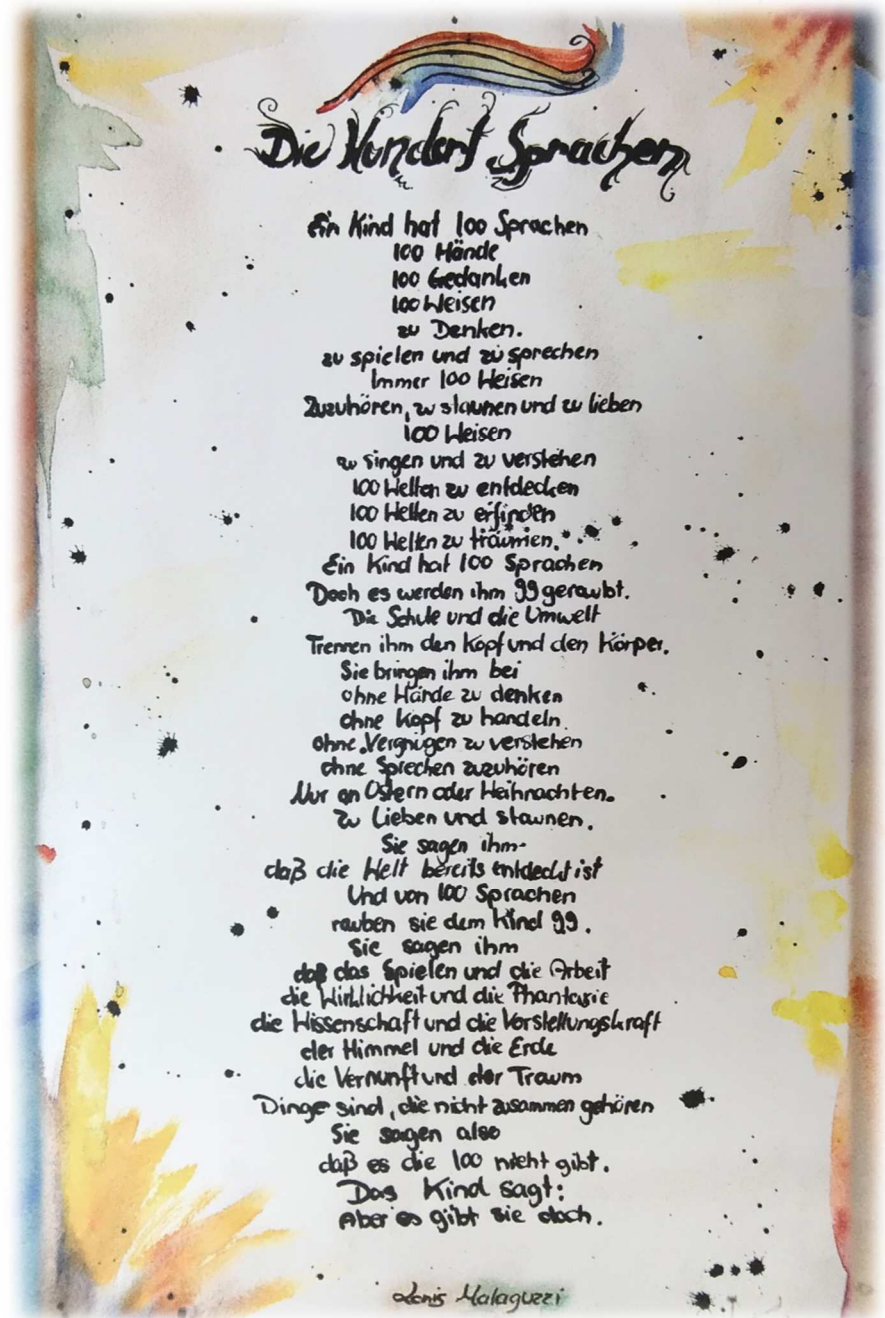 Die Hundert Sprachen
Ein Kind hat 100 Sprachen
100 Hände
100 Gedanken
100 Weisen
zu Denken.
zu spielen und zu sprechen
Immer 100 Weisen
Zuzuhören, zu staunen und zu lieben
100 Weisen
zu singen und zu verstehen
100 Welten zu entdecken
100 Welten zu erfinden
100 Welten zu träumen.
Ein Kind hat 100 Sprachen
Doch es werden ihm 99 geraubt.
Die Schule und die Umwelt
Trennen ihm den Kopf und den Körper.
Sie bringen ihm bei
ohne Hände zu denken
ohne Kopf zu handeln
ohne Vergnügen zu verstehen
ohne Sprechen zuzuhören
Nur an Ostern oder Weihnachten.
Zu Lieben und staunen.
Sie sagen ihm
daß die Welt bereits entdeckt ist
Und von 100 Sprachen
rauben sie dem Kind 99.
Sie sagen ihm
daß das Spielen und die Arbeit
die Wirklichkeit und die Phantasie
die Wissenschaft und die Vorstellungskraft
der Himmel und die Erde
die Vernunft und der Traum
Dinge sind, die nicht zusammen gehören
Sie sagen also
daß es die 100 nicht gibt.
Das Kind sagt:
Aber es gibt sie doch.
Loris Malaguzzi